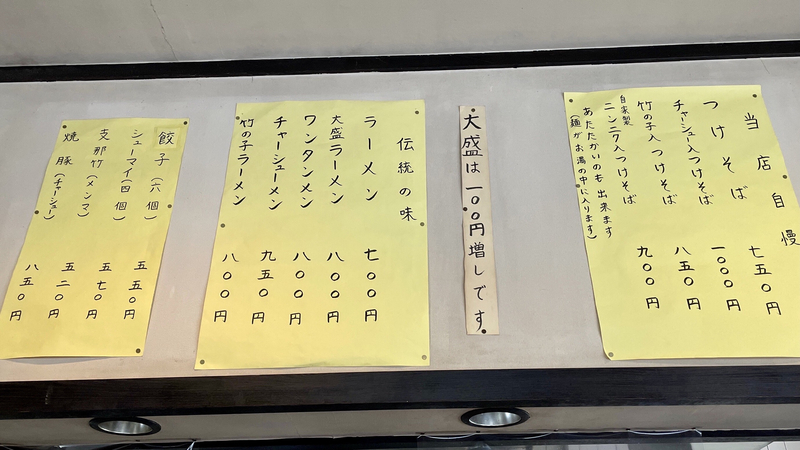 当店自慢
つけそば 七五〇円
チャーシュー入つけそば 一〇〇〇円
竹の子入つけそば 八五〇円
自家製ニンニク入つけそば 九〇〇円
あたたかいのも出来ます
(麺がお湯の中に入ります)
大盛は一〇〇円増しです
伝統の味
ラーメン 七〇〇円
大盛ラーメン 八〇〇円
ワンタンメン 八〇〇円
チャーシューメン 九五〇円
竹の子ラーメン 八〇〇円
餃子(六個) 五五〇円
シューマイ(四個) 五七〇円
支那竹(メンマ) 五二〇円
焼豚(チャーシュー) 八五〇円